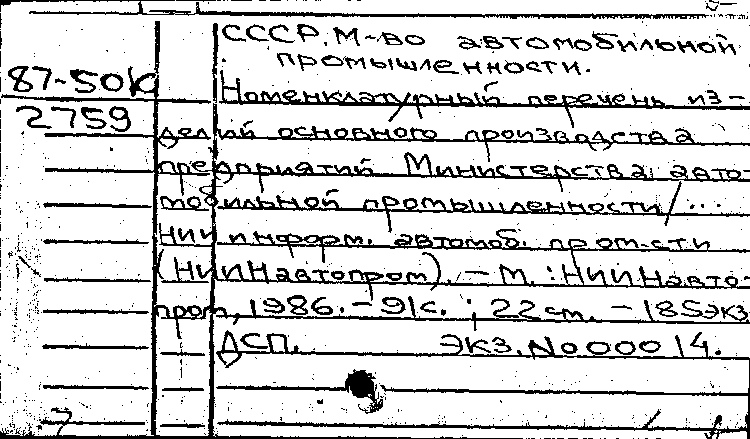 СССР. М-во автомобильной
промышленности.
87-50к
Номенклатурный перечень из-
2759
делий основного производства
предприятий Министерства авто-
мобильной промышленности/...
НИИ информ. автомоб. пром-сти
(НИИНавтопром). — М. : НИИНавто-
пром, 1986. — 91с. ; 22 см. — 185экз
ДСП. Экз. № 00014.